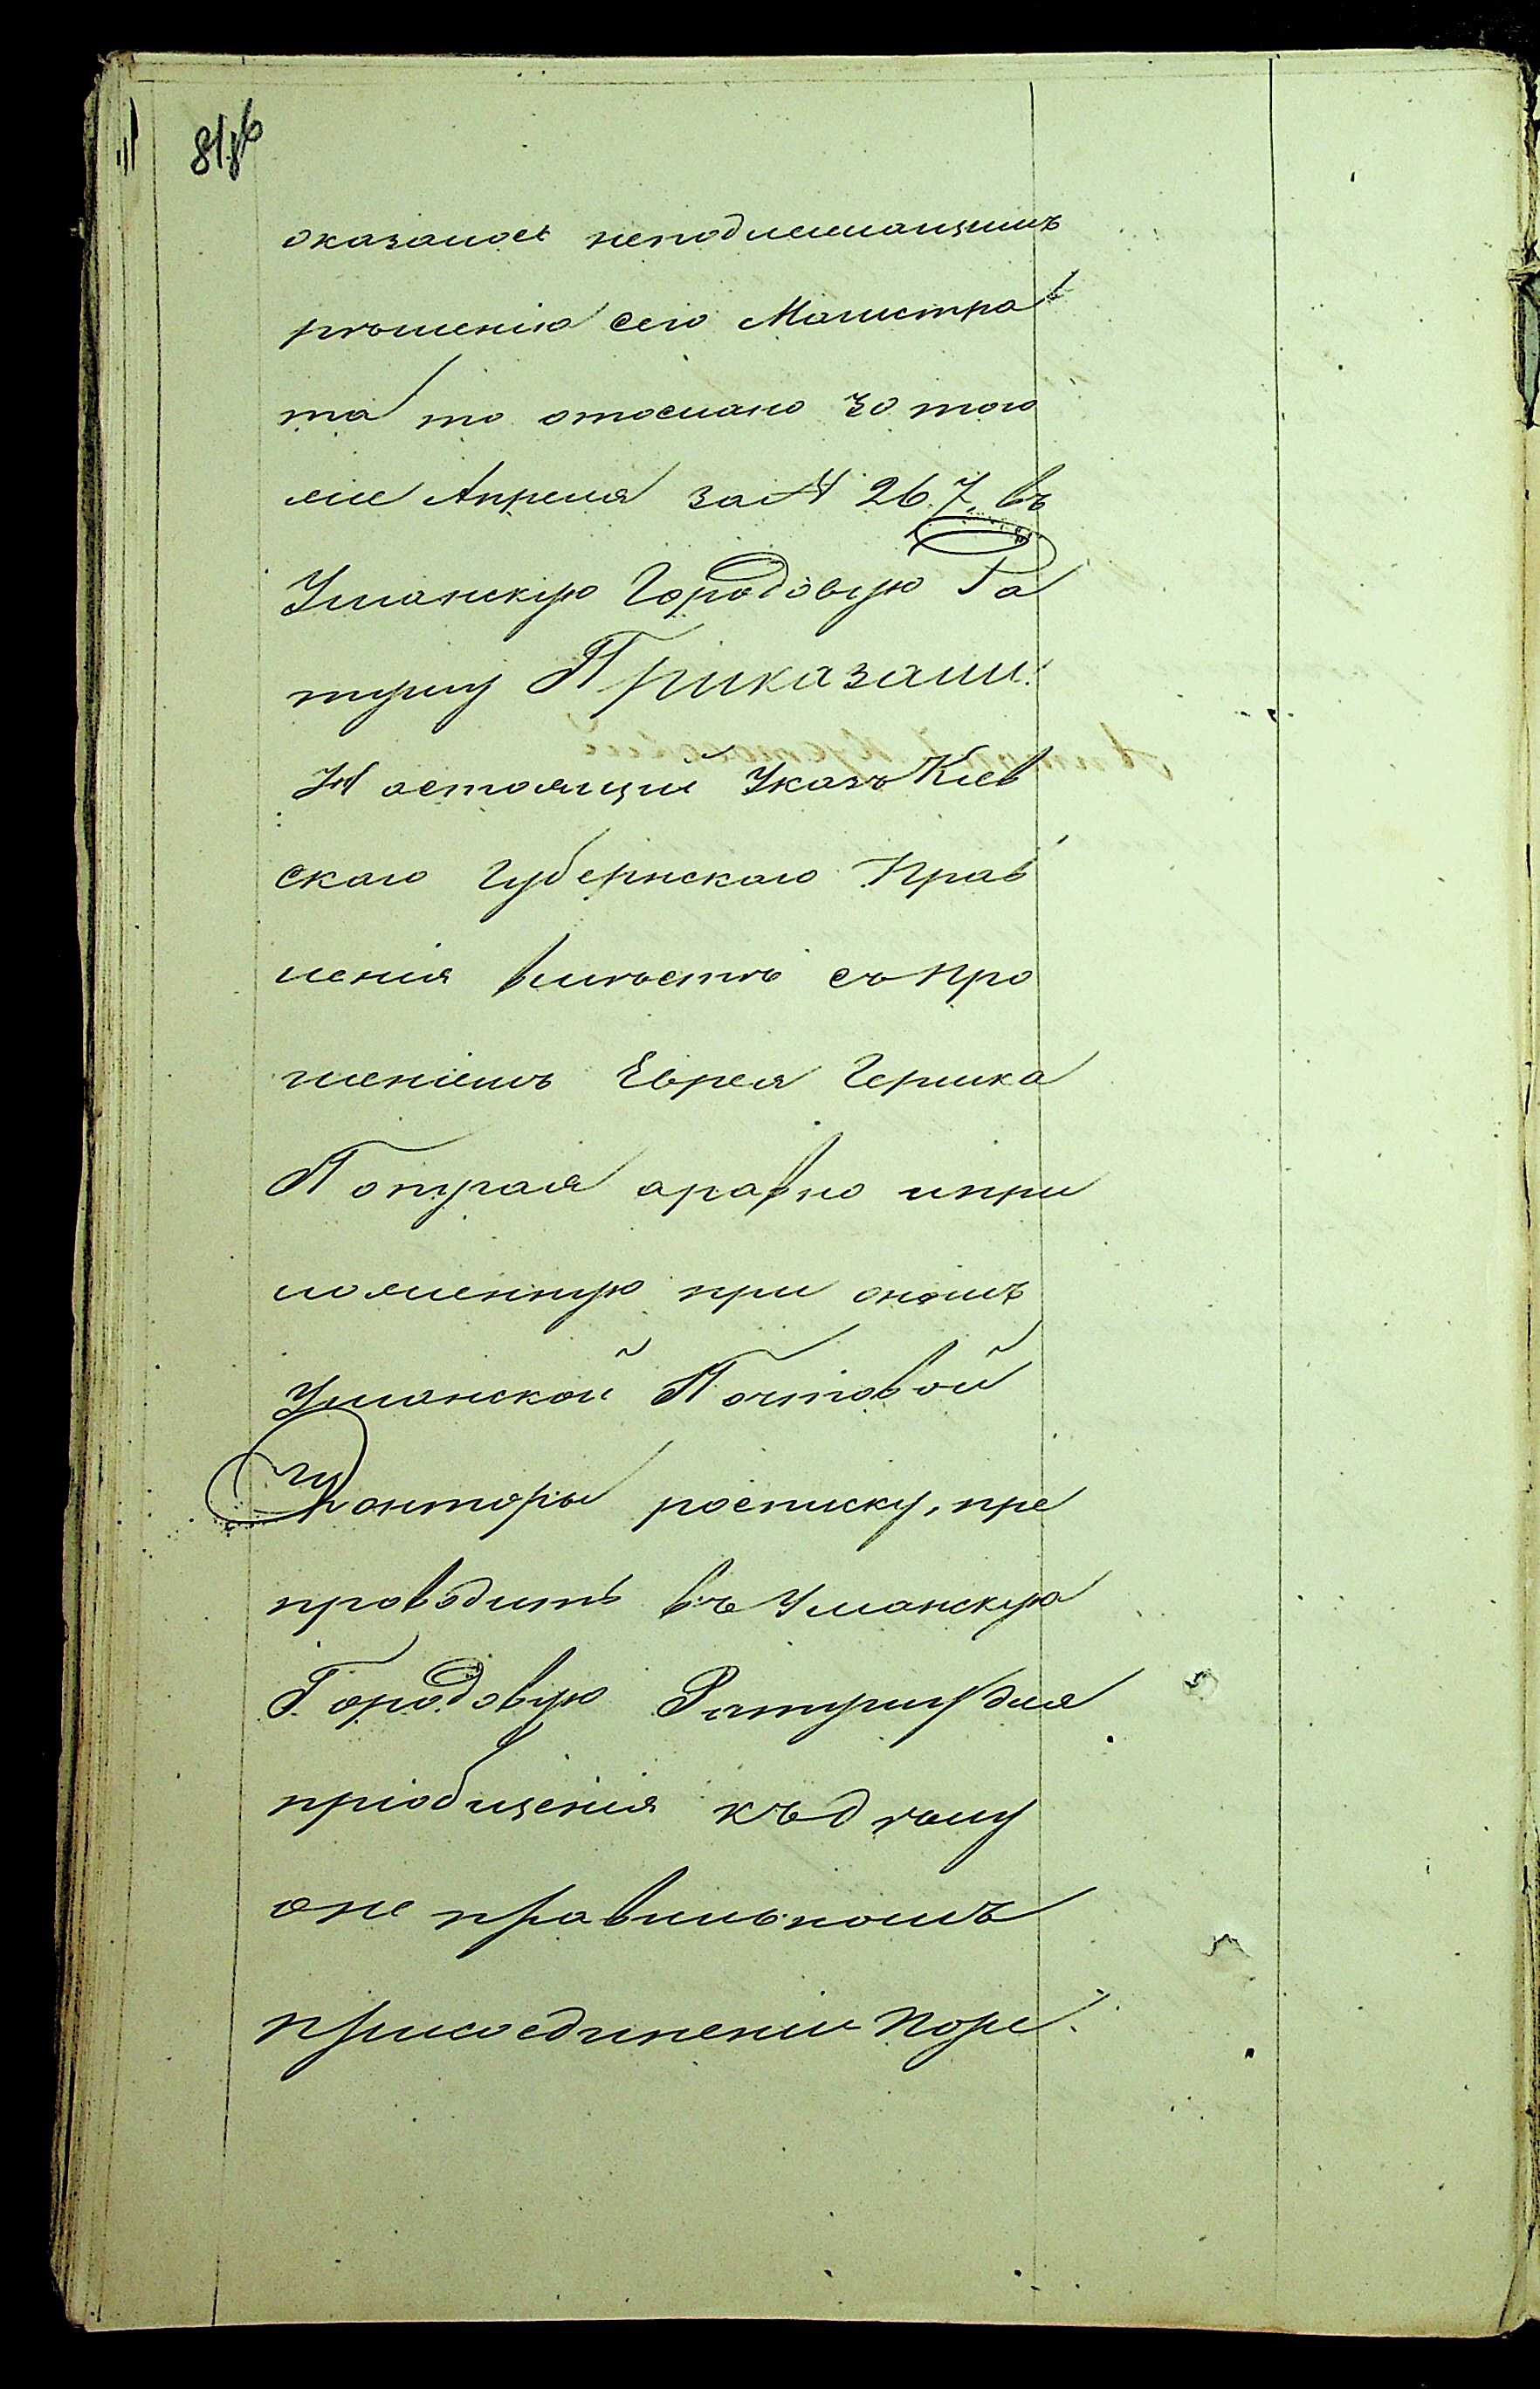 оказалось неподлежащимъ
рѣшенію сего Магистра
та то отослано 30 того
же Апреля за № 267, въ
Уманскую Городовую Ра
тушу Приказали:
Настоящій Указъ Кіев
скаго Губернскаго Прав
ленія вмѣстѣ съ про
шеніемъ Еврея Гершка
Попугая аравно ипри
ложенную при ономъ
Уманской Почтовой
Конторы росписку, пре
проводить въ Уманскую
Городовую Ратушу для
пріобщенія къ дѣлу
оне правильномъ
присоединеніи пори